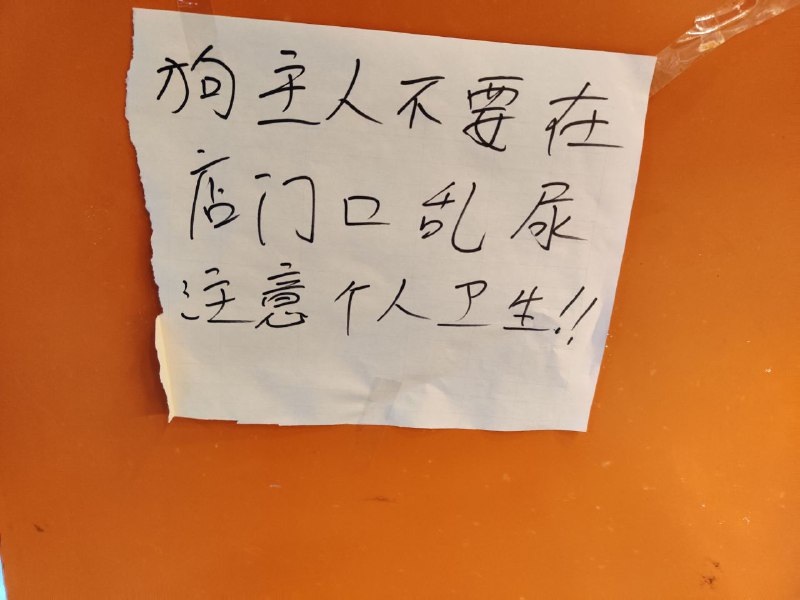 狗主人不要在
店门口乱尿
注意个人卫生!!